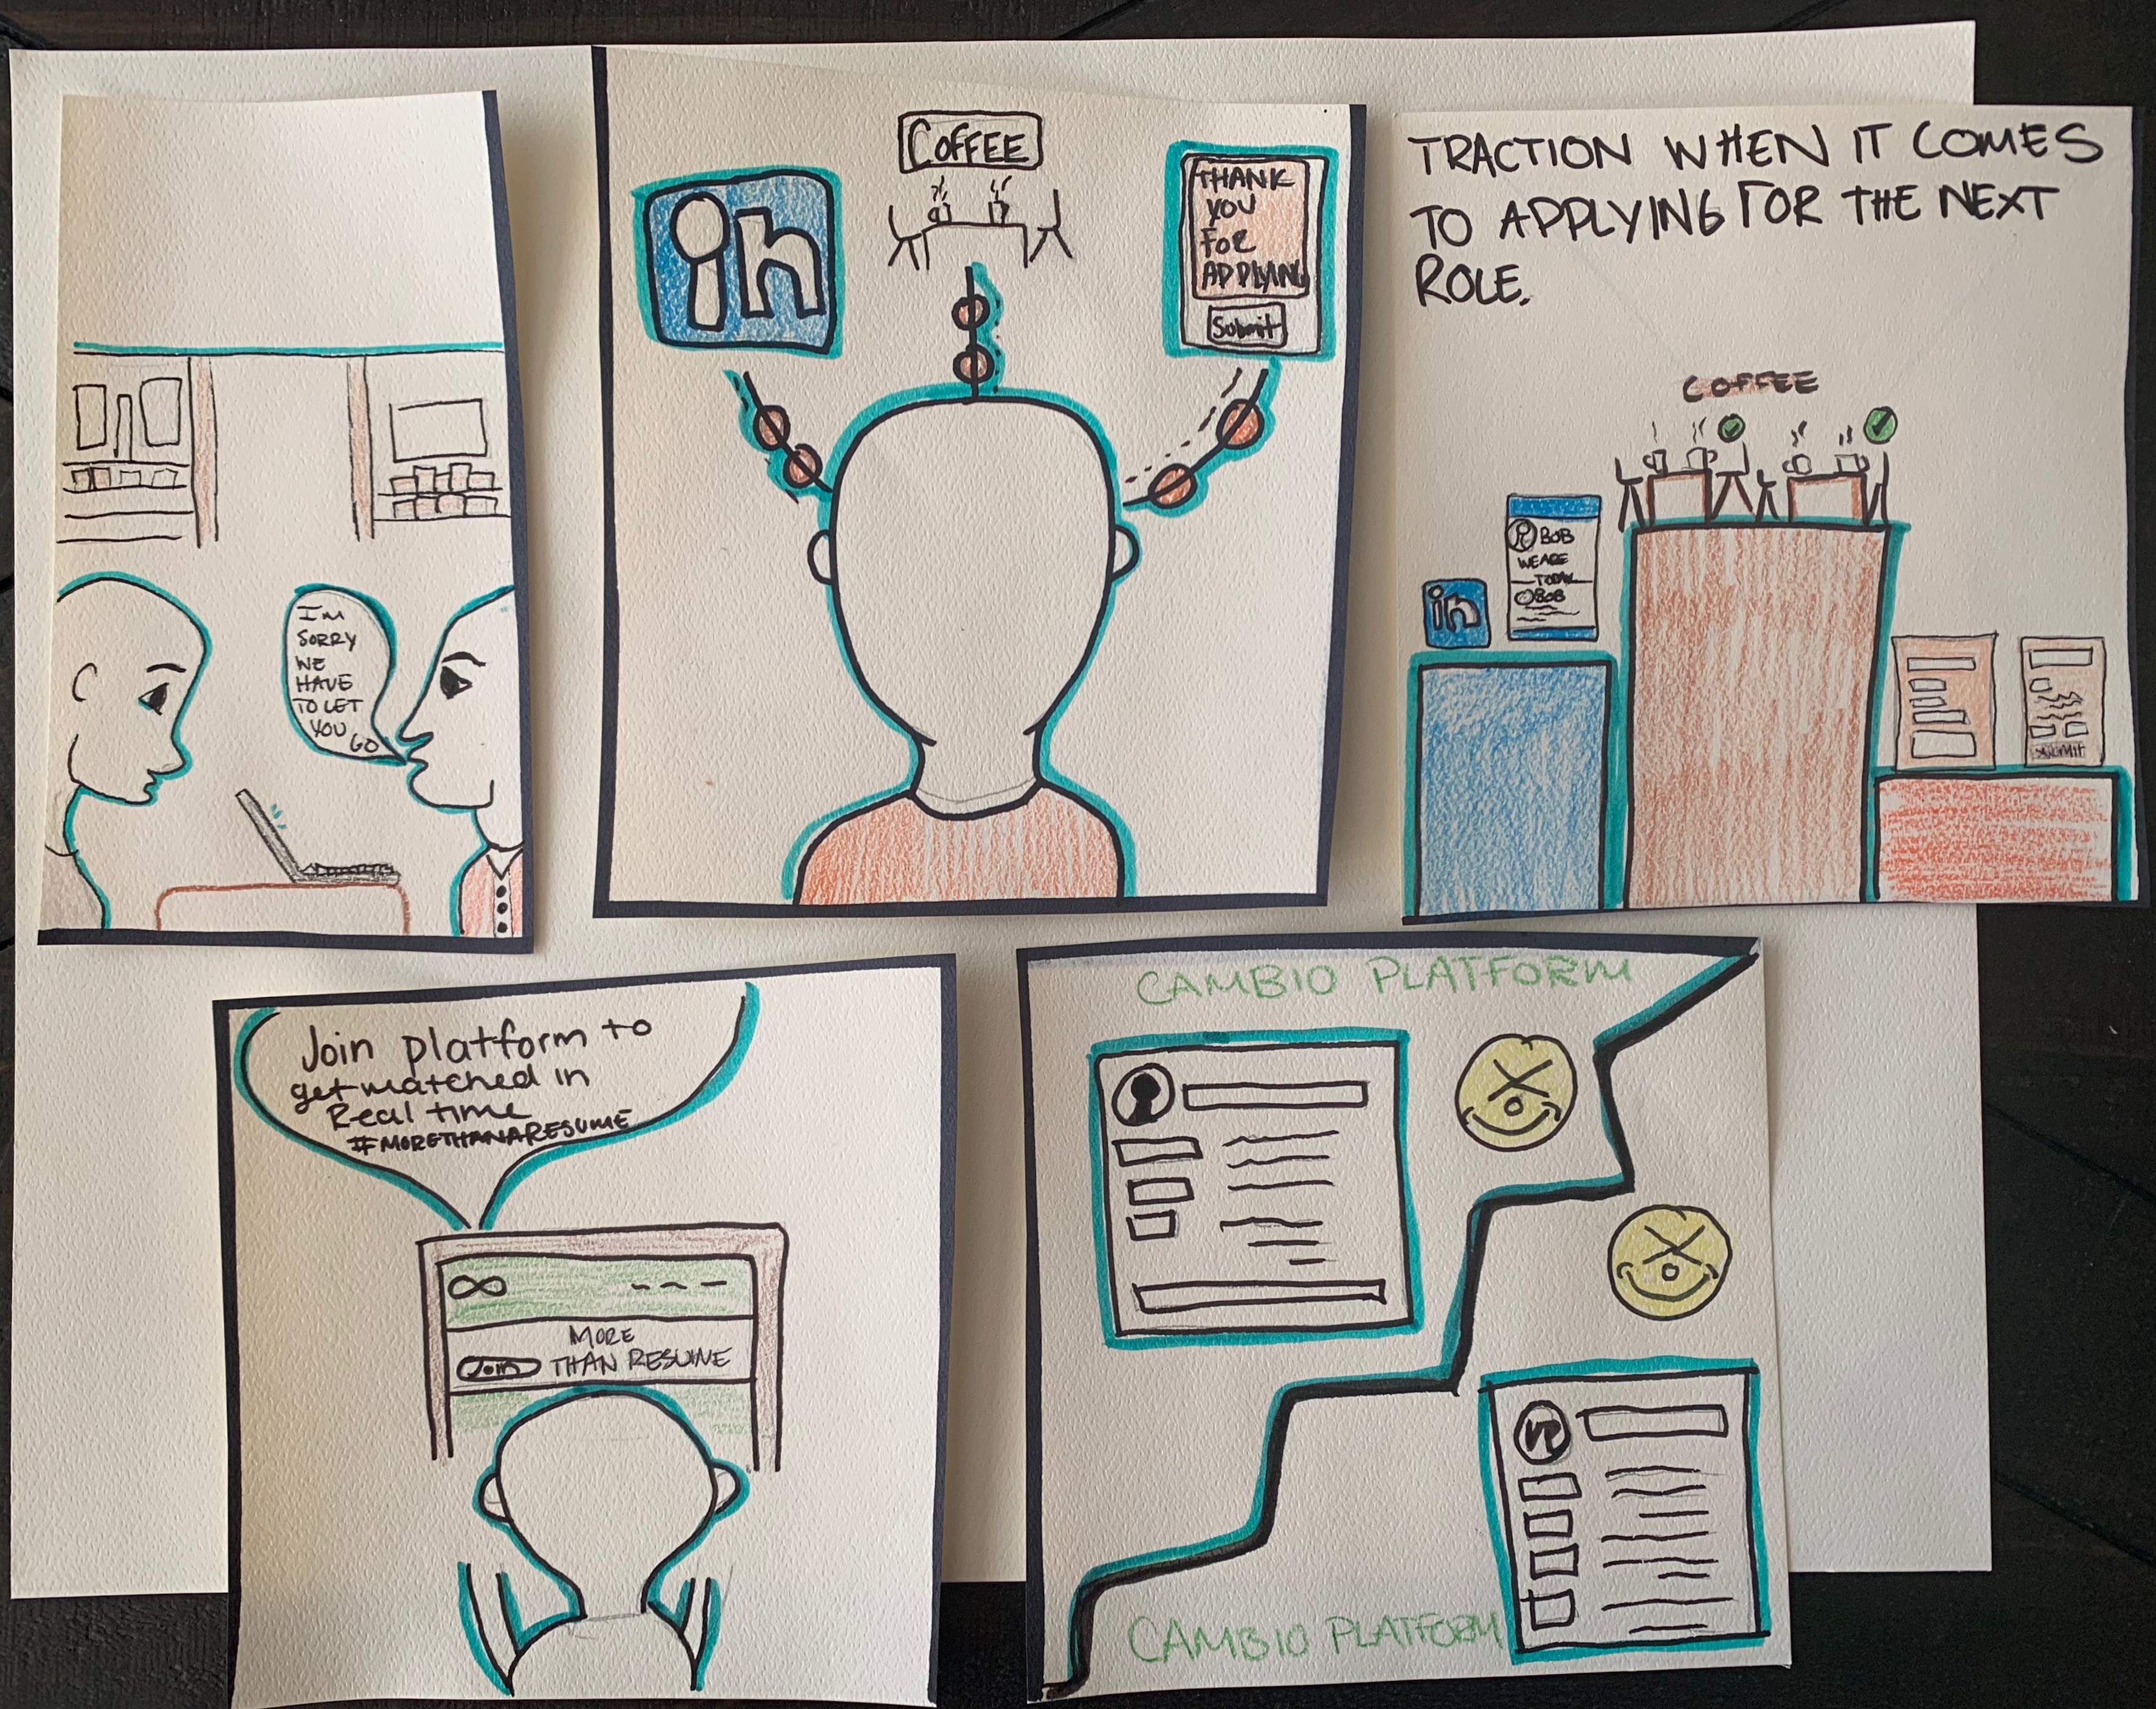 I'M
SORRY
WE
HAVE
TO LET
YOU
GO
in
COFFEE
THANK
YOU
FOR
APPLYING
Submit
TRACTION WHEN IT COMES
TO APPLYING FOR THE NEXT
ROLE.
COFFEE
in
BOB
WE ARE
TODAY
BOB
SUBMIT
Join platform to
get matched in
Real time
#MORETHANARESUME
MORE
Join THAN RESUME
CAMBIO PLATFORM
CAMBIO PLATFORM